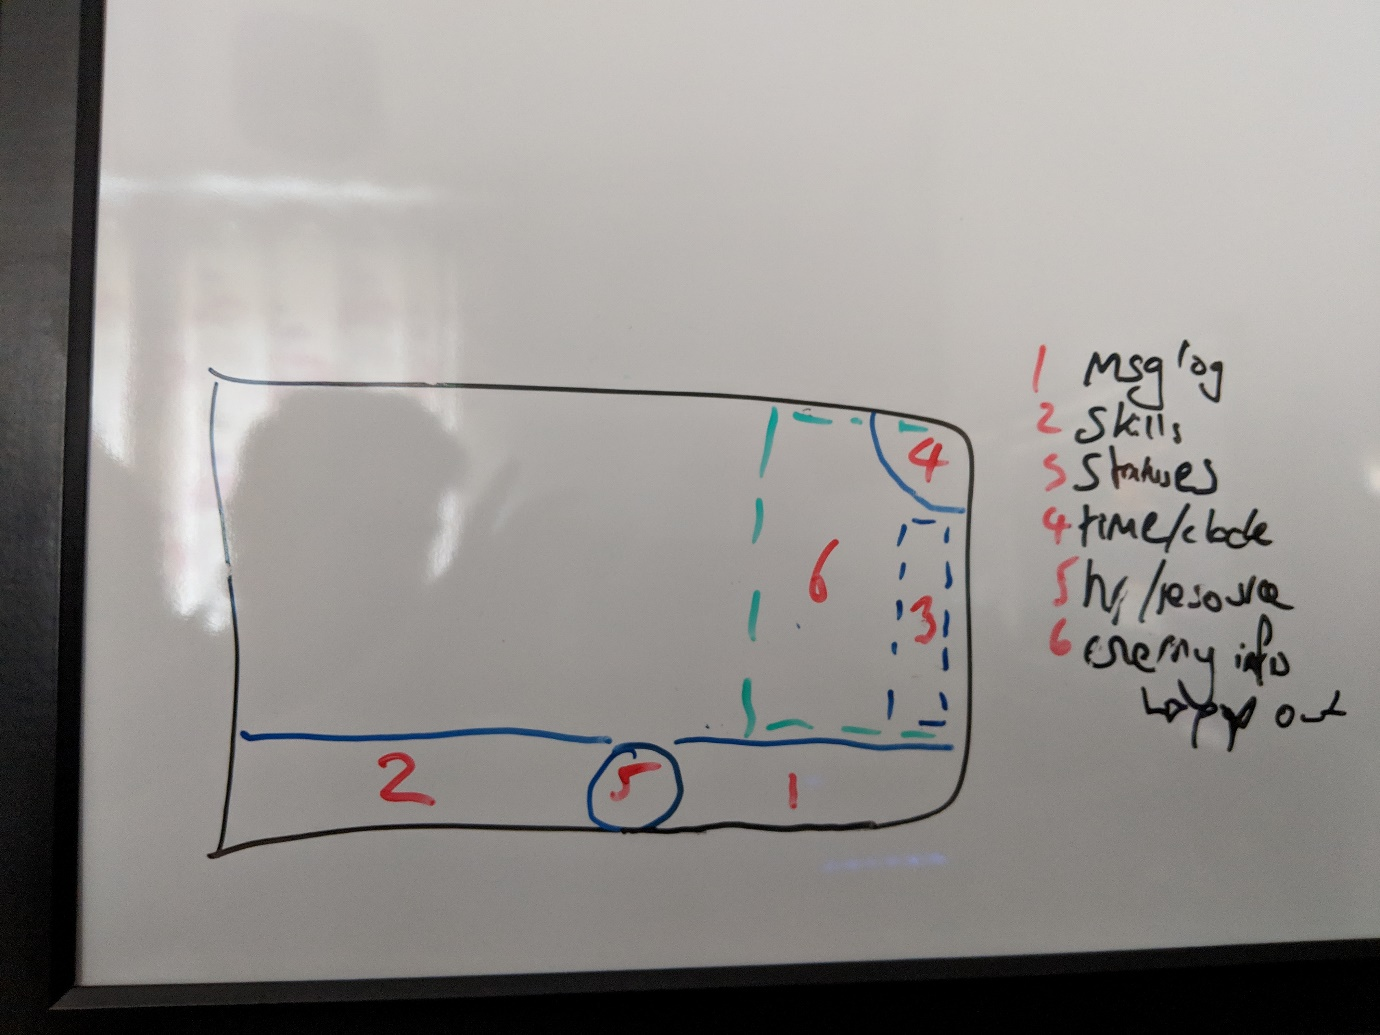 4
6
3
2
5
1
1 Msg log
2 Skills
3 Statuses
4 time/clock
5 hp/resource
6 enemy info
↳ pop out